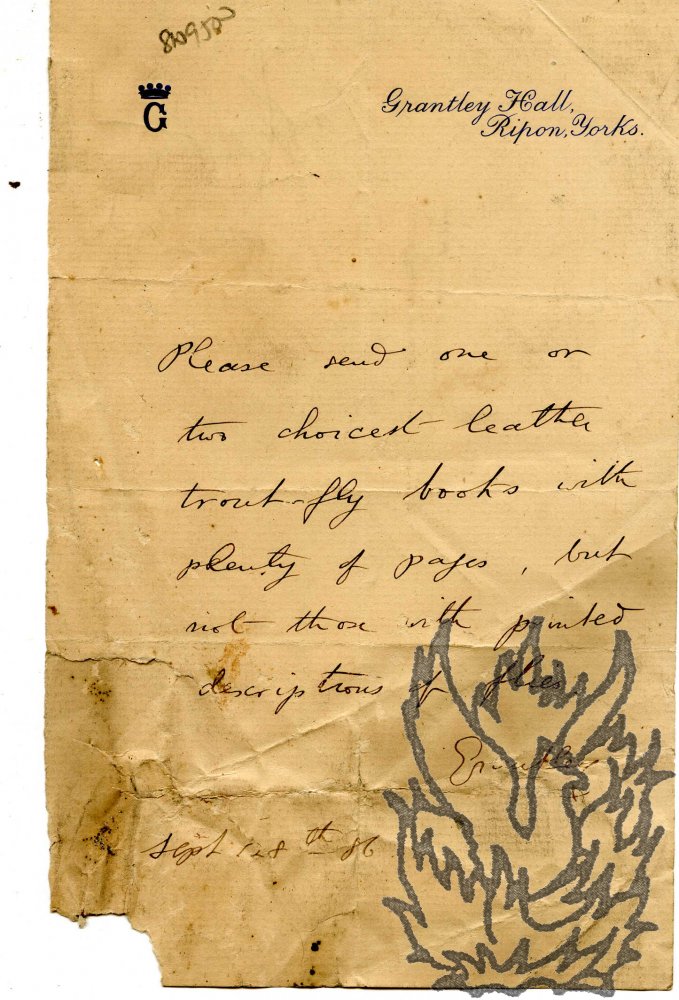 G
Grantley Hall,
Ripon, Yorks.
Please send one or
two choicest leather
trout-fly books with
plenty of pages, but
not those with printed
descriptions of flies.
Grantley
Sept 28th 86